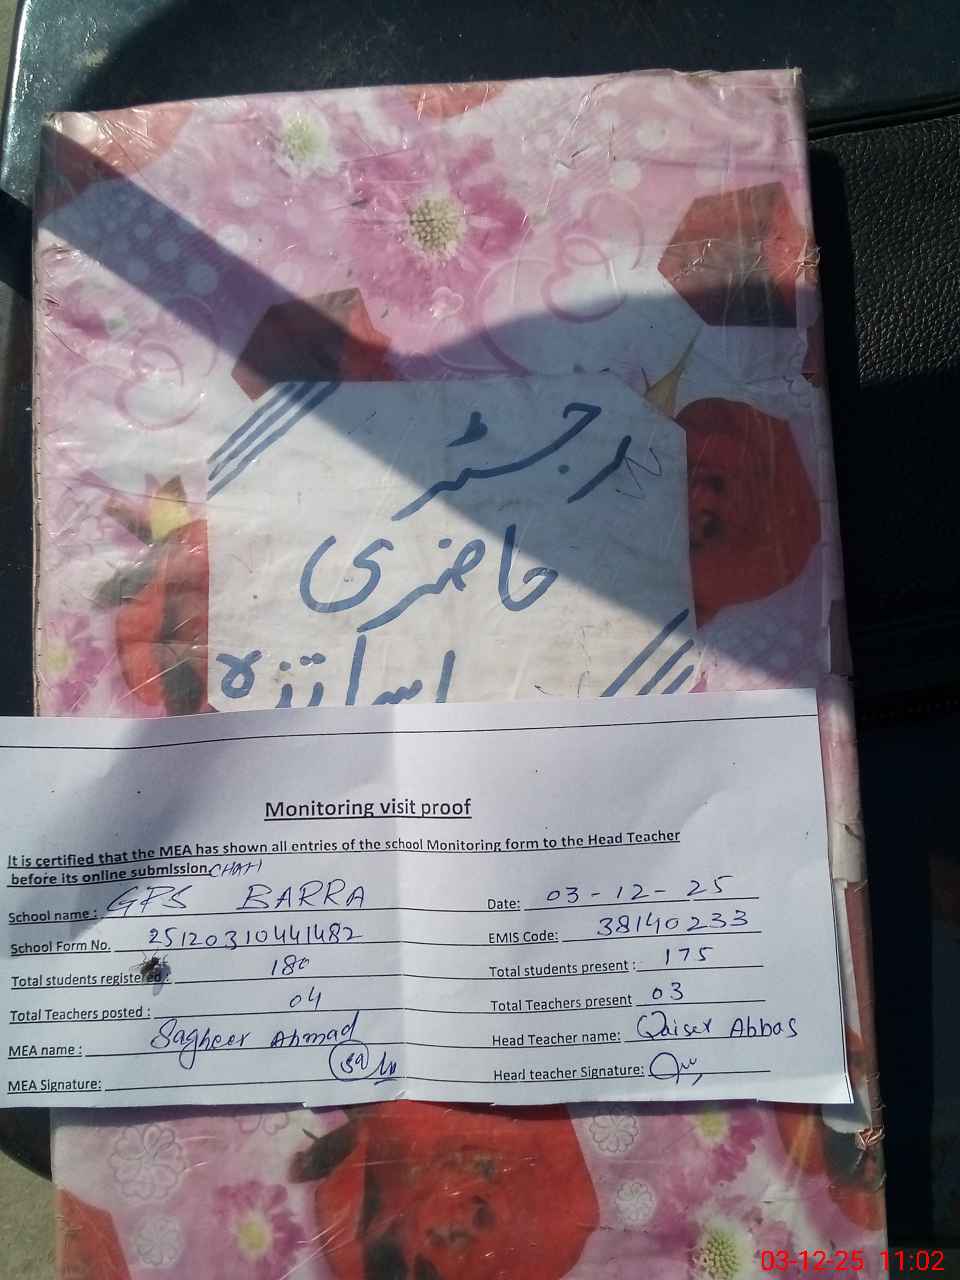 رجسٹر
حاضری
اساتذہ
Monitoring visit proof
It is certified that the MEA has shown all entries of the school Monitoring form to the Head Teacher
before its online submission. CHAH
School name : GPS BARRA
Date: 03-12-25
School Form No. 25120310441482
EMIS Code: 38140233
Total students registered : 180
Total students present : 175
Total Teachers posted : 04
Total Teachers present 03
MEA name : Sagheer Ahmad
Head Teacher name: Qaiser Abbas
MEA Signature:
Head teacher Signature:
03-12-25 11:02